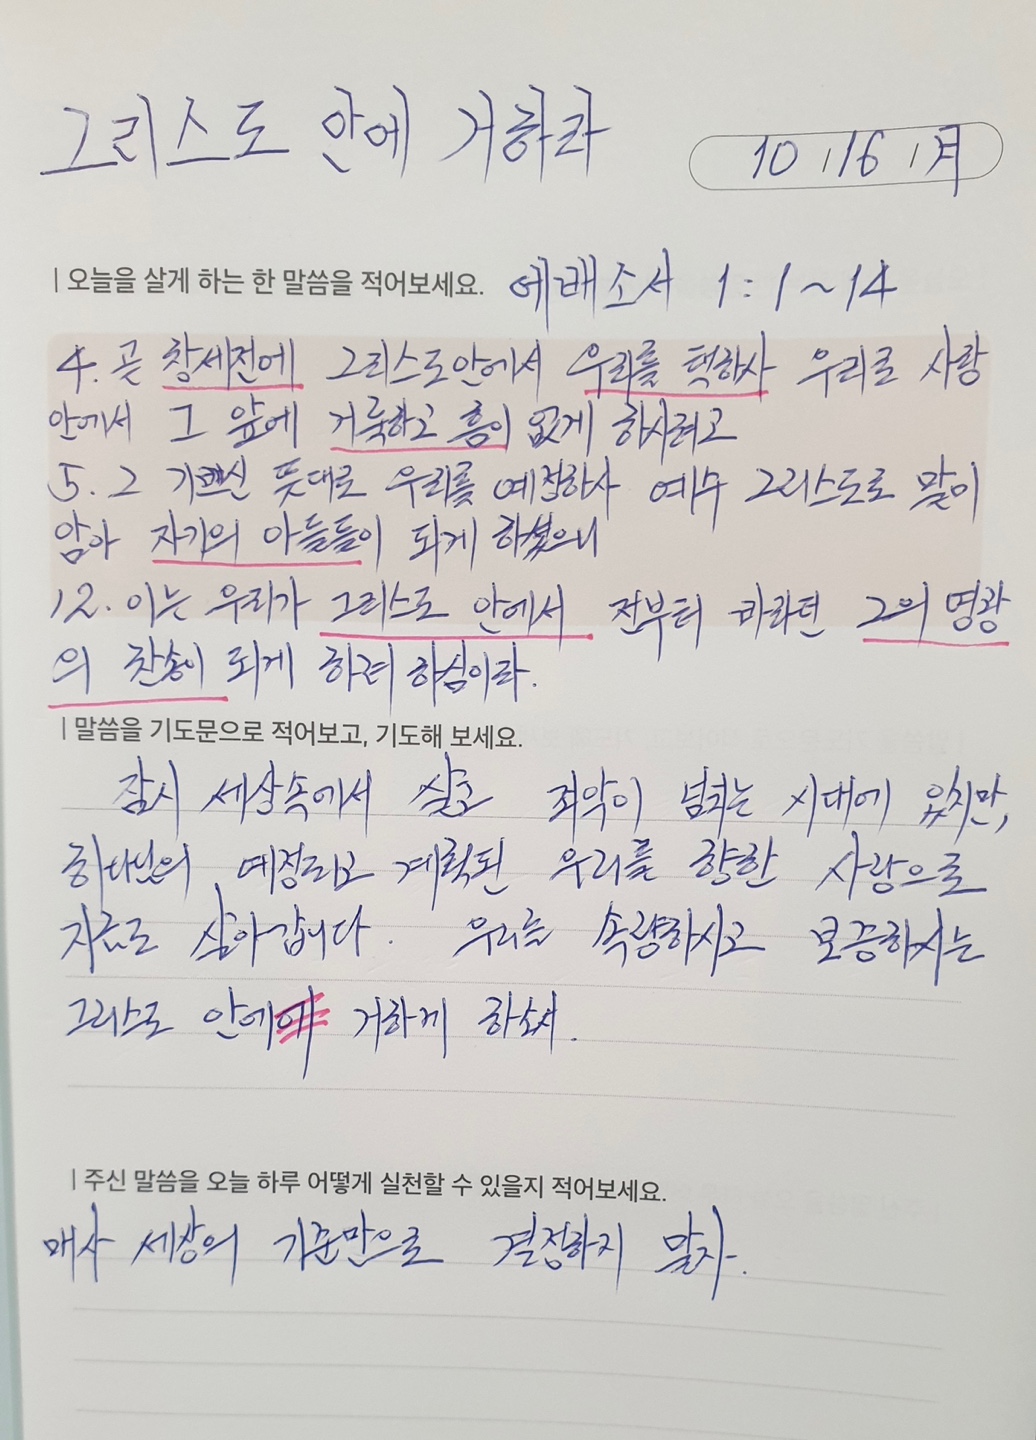 그리스도 안에 거하라
10 / 16 / 月
| 오늘을 살게 하는 한 말씀을 적어보세요. 에베소서 1 : 1 ~ 14
4. 곧 창세전에 그리스도안에서 우리를 택하사 우리로 사랑
안에서 그 앞에 거룩하고 흠이 없게 하시려고
5. 그 기쁘신 뜻대로 우리를 예정하사 예수 그리스도로 말미
암아 자기의 아들들이 되게 하셨으니
12. 이는 우리가 그리스도 안에서 전부터 바라던 그의 영광
의 찬송이 되게 하려 하심이라.
| 말씀을 기도문으로 적어보고, 기도해 보세요.
잠시 세상속에서 죄악이 넘치는 시대에 있지만,
하나님의 예정되고 계획된 우리를 향한 사랑으로
지금도 살아갑니다. 우리를 속량하시고 보증하시는
그리스도 안에 거하게 하소서.
| 주신 말씀을 오늘 하루 어떻게 실천할 수 있을지 적어보세요.
매사 세상의 기준만으로 결정하지 말자.